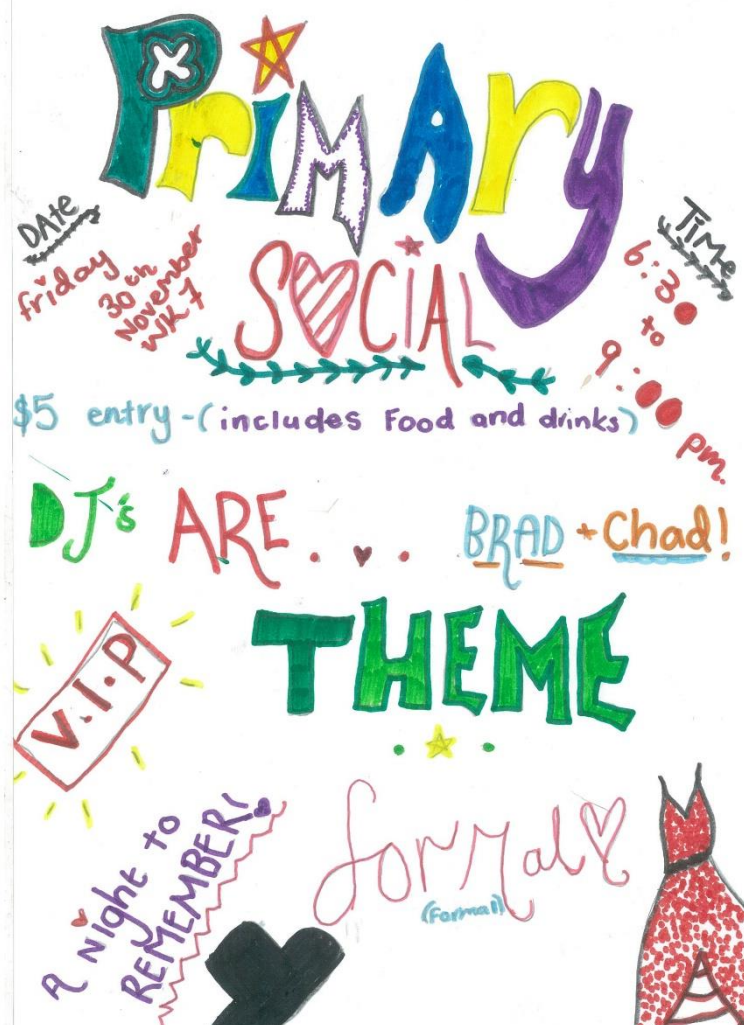 PriMAry
SOCIAL
DAte
friday
30th
November
WK7
TiMe
6:30
to
9:00
pm.
$5 entry - (includes Food and drinks)
DJ's ARE . . . BRAD + Chad!
V.I.P
THEME
forMal
(Formal)
A Night to
REMEMBER!